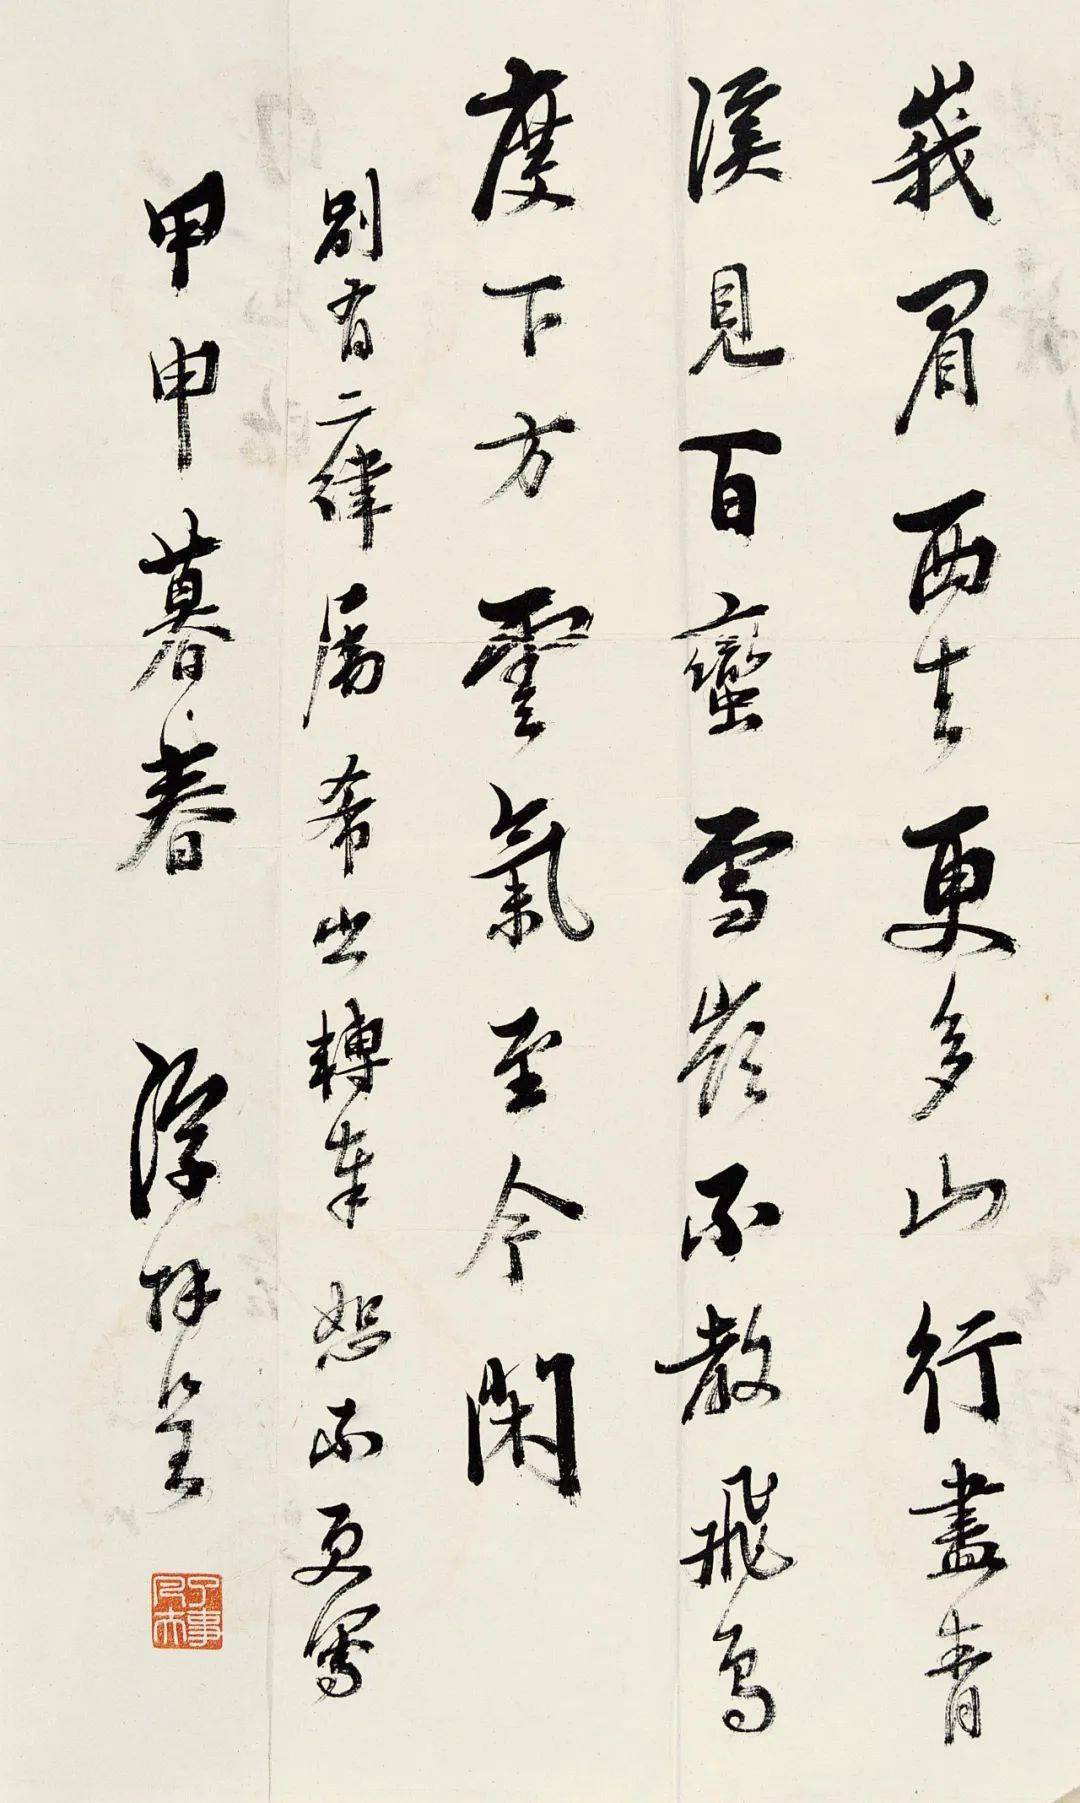 峩眉西去更多山行盡青
溪見百蠻雪嶺不教飛鳥
度下方雲氣至今閑
別有二律屬希出轉奉恕不更寫
甲申暮春 浮拜呈